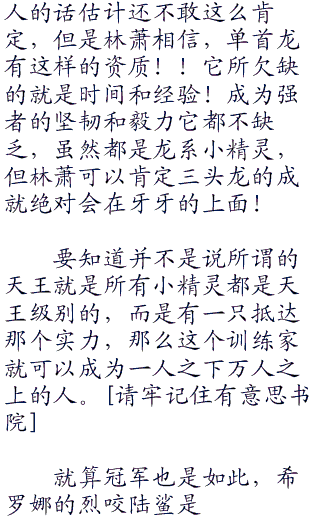 人的话估计还不敢这么肯
定，但是林萧相信，单首龙
有这样的资质！！它所欠缺
的就是时间和经验！成为强
者的坚韧和毅力它都不缺
乏，虽然都是龙系小精灵，
但林萧可以肯定三头龙的成
就绝对会在牙牙的上面！
要知道并不是说所谓的
天王就是所有小精灵都是天
王级别的，而是有一只抵达
那个实力，那么这个训练家
就可以成为一人之下万人之
上的人。[请牢记住有意思书
院]
就算冠军也是如此，希
罗娜的烈咬陆鲨是